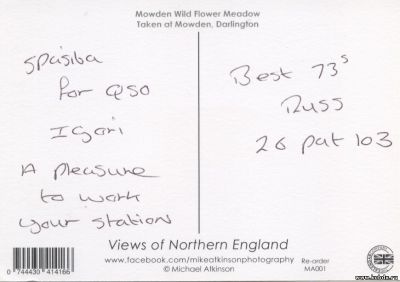 Mowden Wild Flower Meadow
Taken at Mowden, Darlington
Spasiba
for QSO
Igori
A pleasure
to work
your station
Best 73s
Russ
26 pat 103
Views of Northern England
www.facebook.com/mikeatkinsonphotography
© Michael Atkinson
Re-order
MA001
0 744430 414166